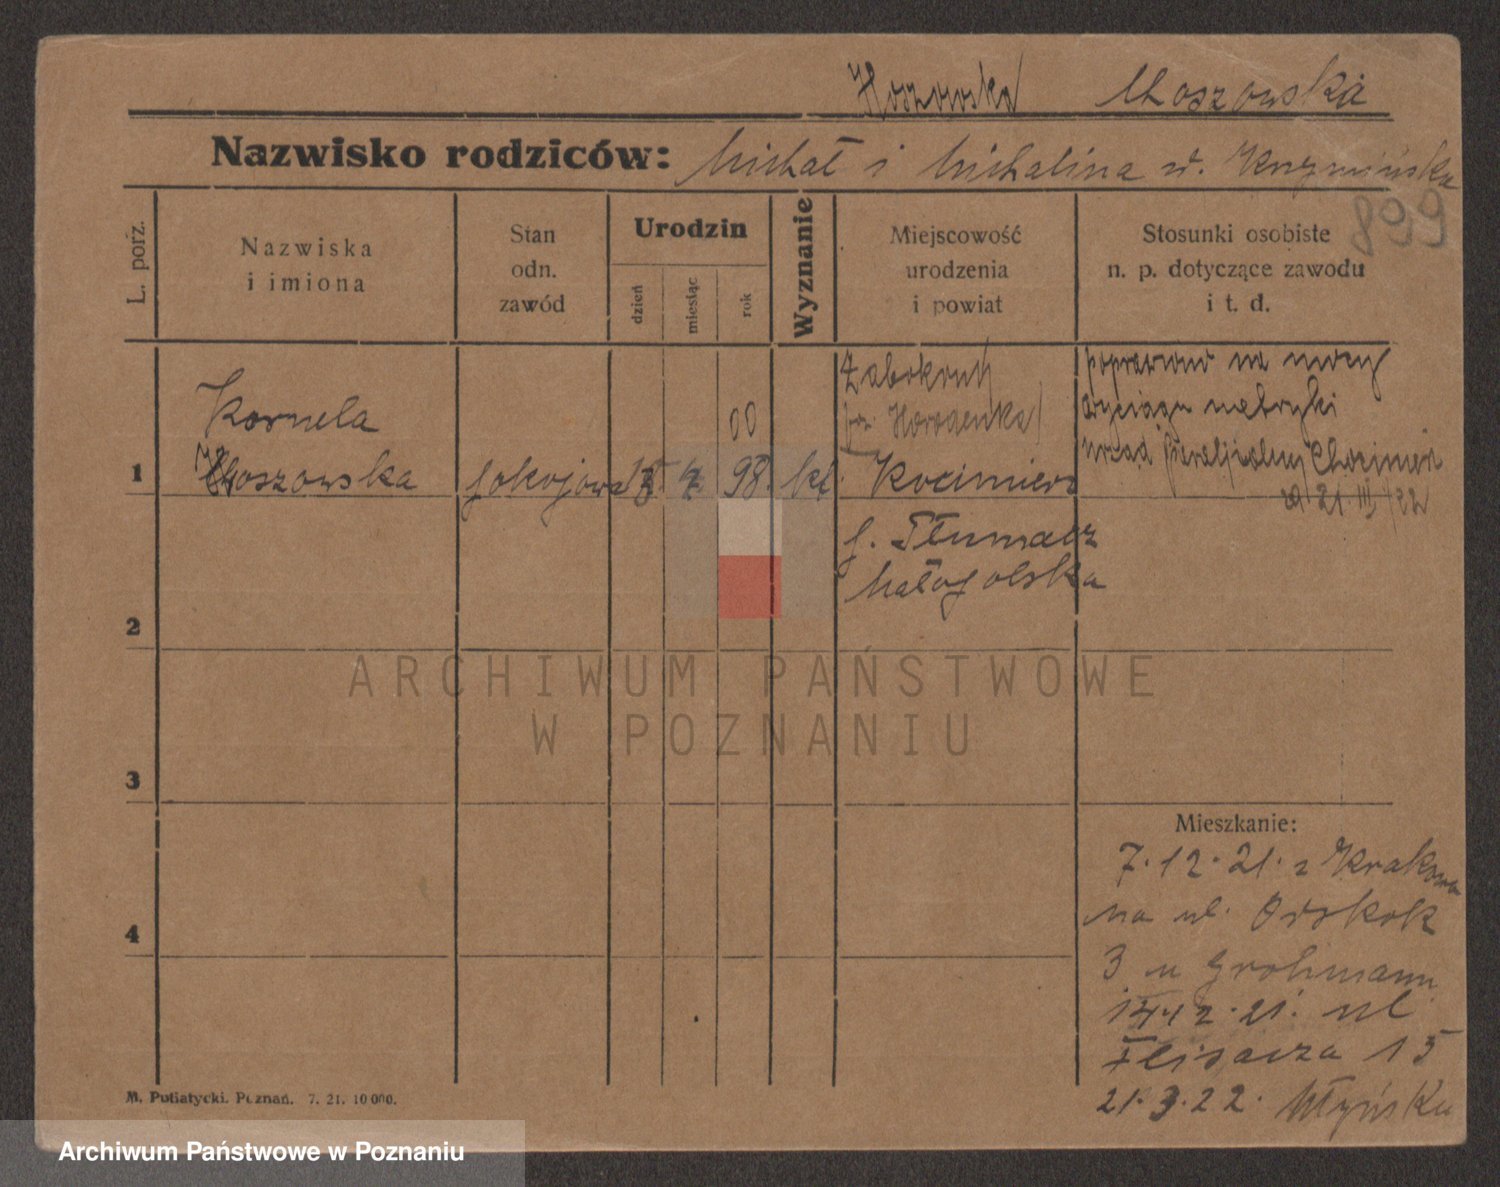 Hoszowska Choszowska
Nazwisko rodziców: Michał i Michalina z d. Krzymińska
899
L. porz.
Nazwiska
i imiona
Stan
odn.
zawód
Urodzin
dzień
miesiąc
rok
Wyznanie
Miejscowość
urodzenia
i powiat
Stosunki osobiste
n. p. dotyczące zawodu
i t. d.
1
Kornela
Hoszowska
pokojowa
00
98.
kt.
Żabokruki
pow. Horodenka
Kocimierz
p. Tłumacz
Małopolska
poprawiono na mocy
wyciągu metryki
urząd parafialny Chocimierz
21 III 22
2
3
4
Mieszkanie:
7.12.21. z Krakowa
na ul.
3 u Grohmann
14.12.21. ul
Flisacza 15
21.3.22. Młyńska
M. Putiatycki. Poznań. 7. 21. 10 000.
ARCHIWUM PAŃSTWOWE
W POZNANIU
Archiwum Państwowe w Poznaniu